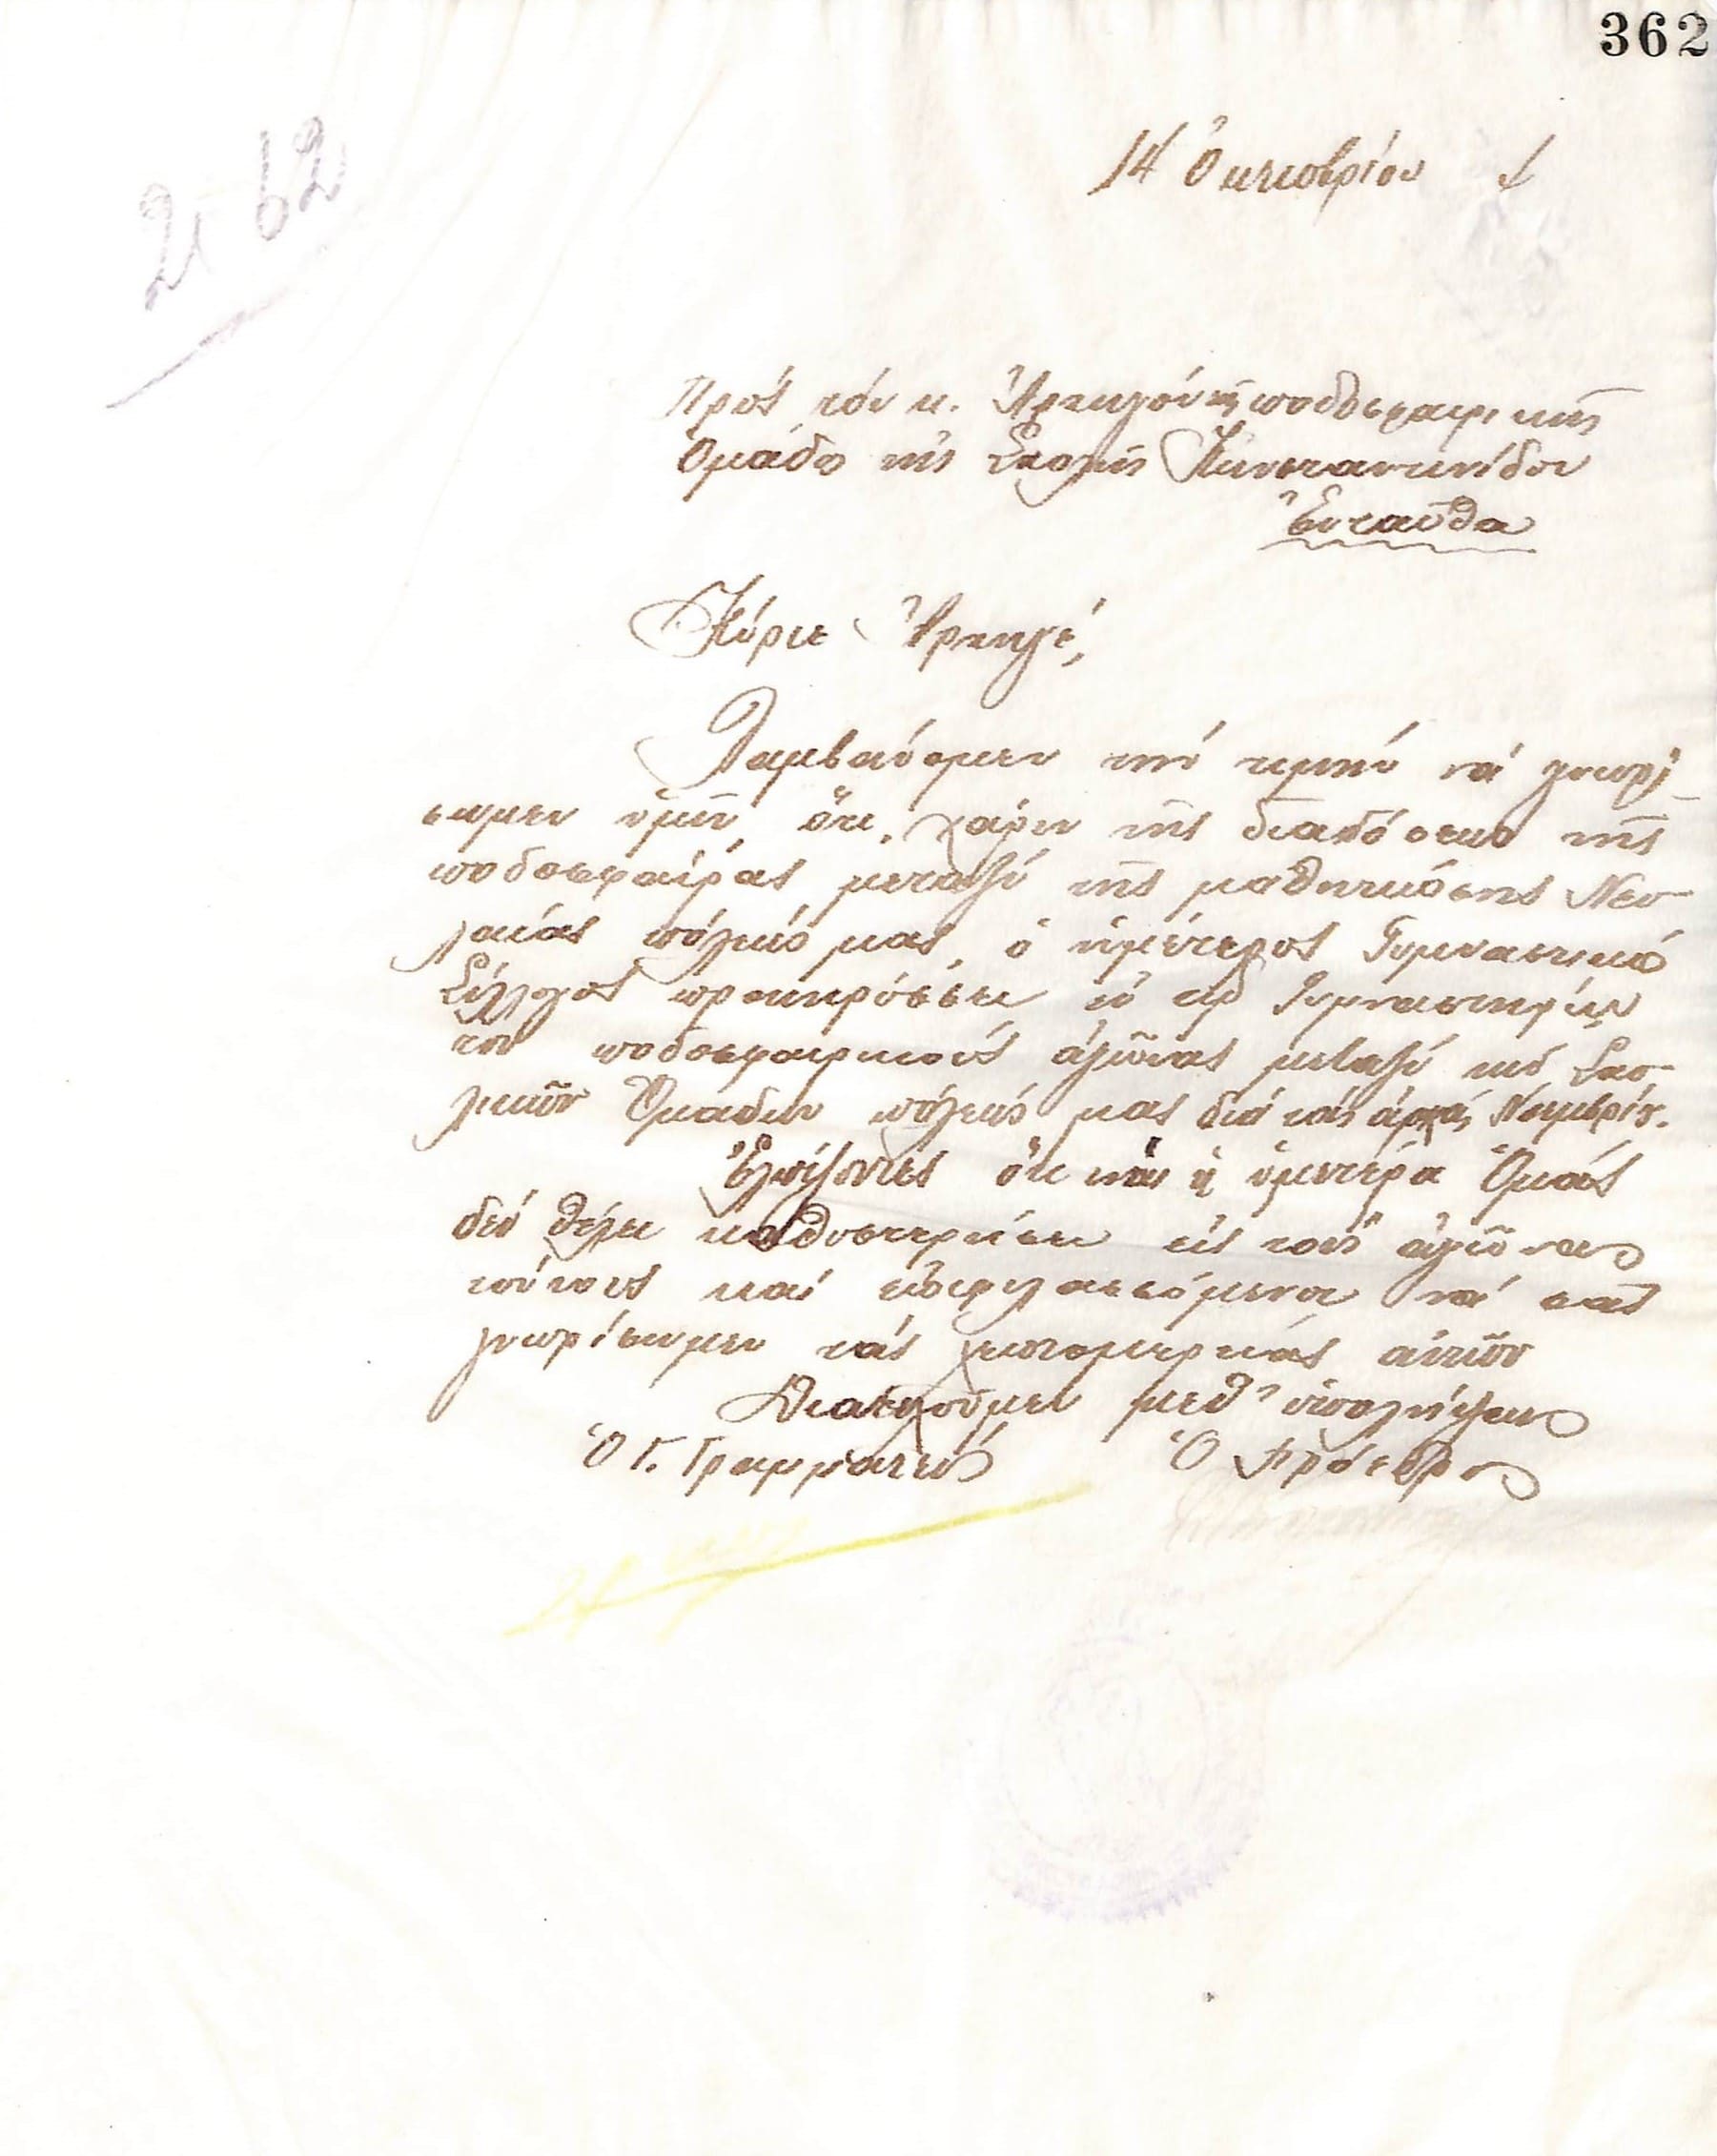 362
2162
14 Ὀκτωβρίου
Πρὸς τὸν κ. Ἀρχηγὸν τῆς ποδοσφαιρικῆς
Ὁμάδος τῆς Σχολῆς Κωνσταντινίδου
Ἐνταῦθα
Κύριε Ἀρχηγέ,
Λαμβάνομεν τὴν τιμὴν νὰ γνωρί-
σωμεν ὑμῖν, ὅτι, χάριν τῆς διαδόσεως τῆς
ποδοσφαίρας μεταξὺ τῆς μαθητευούσης Νεο-
λαίας πόλεώς μας, ὁ ἡμέτερος Γυμναστικὸς
Σύλλογος προκηρύσσει ἐν τῷ Γυμναστηρίῳ
του ποδοσφαιρικοὺς ἀγῶνας μεταξὺ τῶν Σχο-
λικῶν Ὁμάδων πόλεώς μας διὰ τὰς ἀρχὰς Νοεμβρίου.
Ἐλπίζοντες ὅτι καὶ ἡ ὑμετέρα Ὁμὰς
δὲν θέλει καθυστερήσει εἰς τοὺς ἀγῶνας
τούτους καὶ ἐπιφυλασσόμενοι νὰ σᾶς
γνωρίσωμεν τὰς λεπτομερείας αὐτῶν
Διατελοῦμεν μεθ' ὑπολήψεως
Ὁ Γ. Γραμματεὺς Ὁ Πρόεδρος